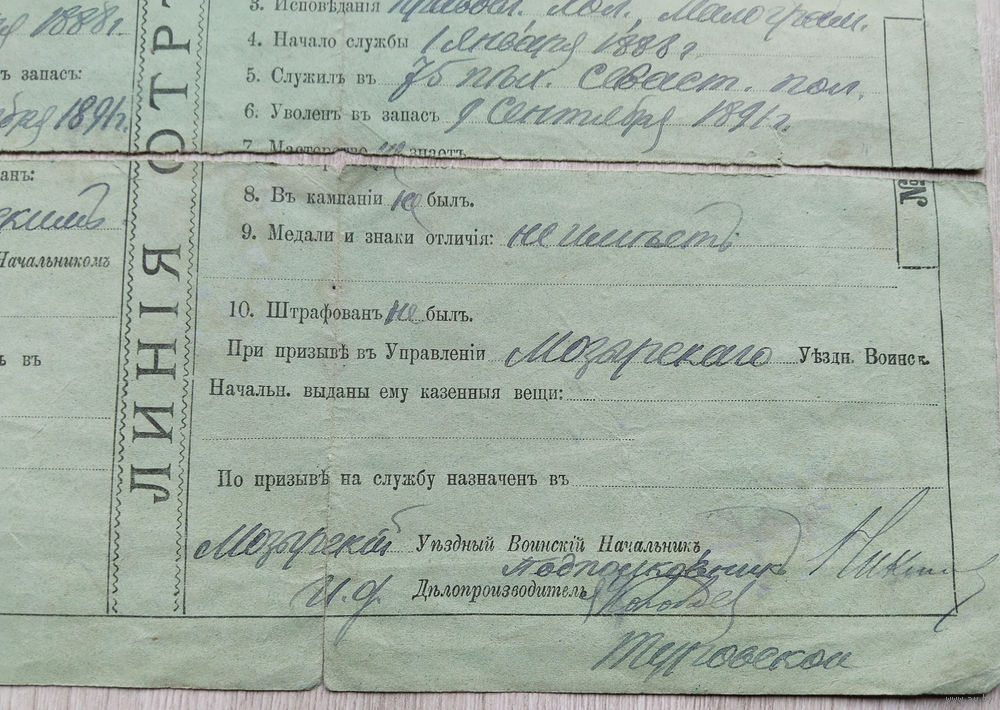 я 1888 г.
ъ запасъ:
бря 1891 г.
анъ:
Начальникомъ
ь въ
ЛИНІЯ ОТР
3. Исповѣданія Правосл. хол. Малограм.
4. Начало службы 1 января 1888 г
5. Служилъ въ 75 пѣх. Севаст. пол.
6. Уволенъ въ запасъ 9 Сентября 1891 г.
7. Мастерство не знаетъ
8. Въ кампаніи не былъ.
9. Медали и знаки отличія: не имѣетъ
10. Штрафованъ не былъ.
При призывѣ въ Управленіи Мозырскаго Уѣздн. Воинск.
Начальн. выданы ему казенныя вещи:
По призывѣ на службу назначенъ въ
Мозырскій Уѣздный Воинскій Начальникъ
Подполковникъ
И. д. Дѣлопроизводитель
Туровской
№
www.ay.by